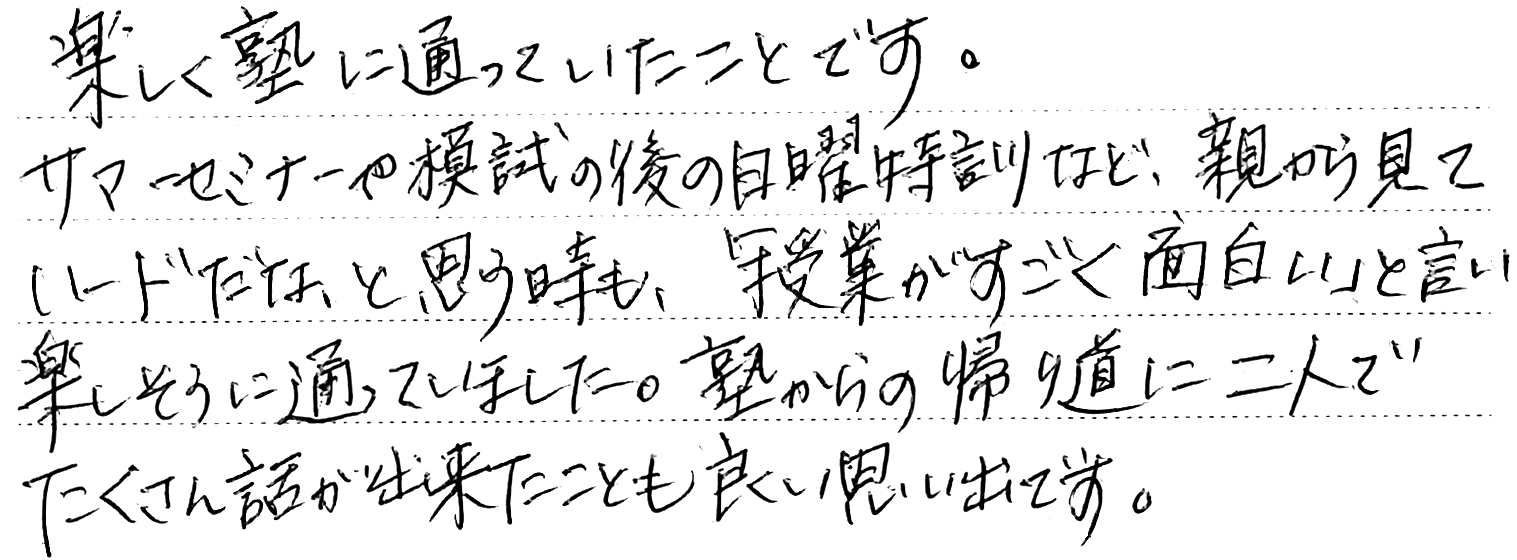 楽しく塾に通っていたことです。
サマーセミナーや模試の後の日曜特訓など、親から見て
ハードだな、と思う時も、「授業がすごく面白い」と言い
楽しそうに通っていました。塾からの帰り道に二人で
たくさん話が出来たことも良い思い出です。